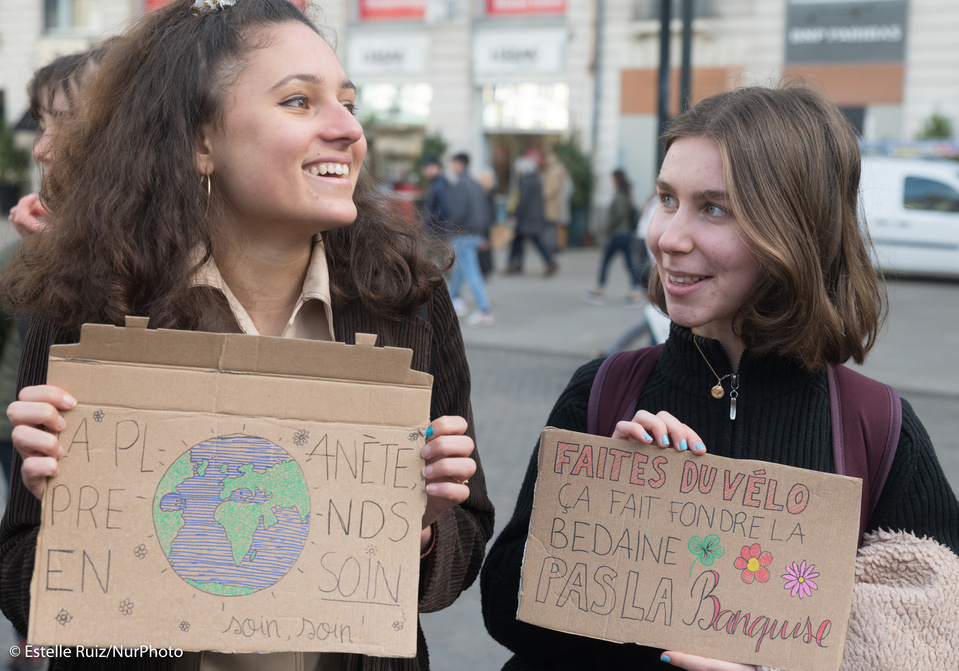 BNP PARIBAS
LA PLANÈTE,
PRENDS
EN SOIN
soin, soin!
FAITES DU VÉLO
ÇA FAIT FONDRE LA
BEDAINE
PAS LA Banquise
© Estelle Ruiz/NurPhoto